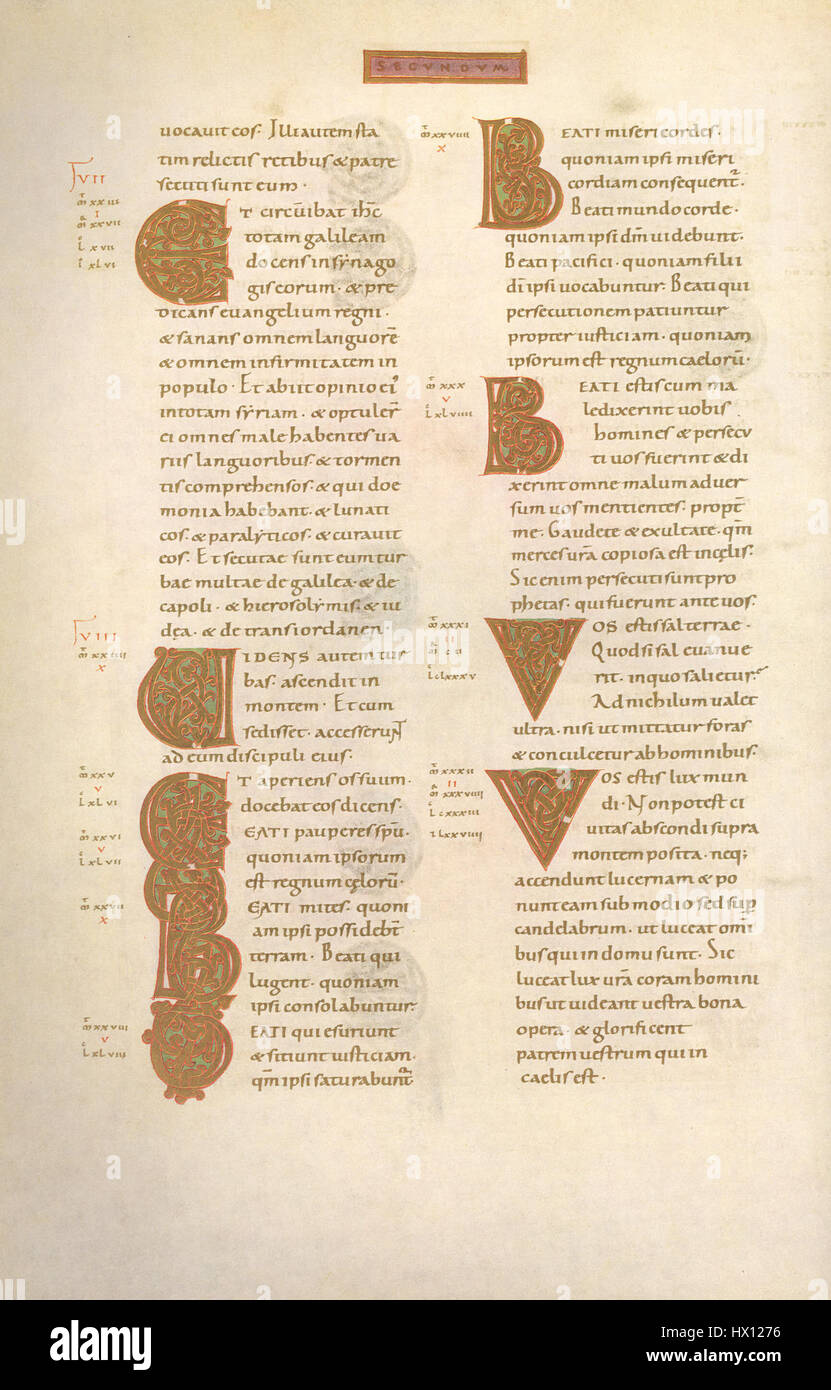 SECUNDUM
uocauit eos· Illi autem sta
tim relictis retibus & patre
secuti sunt eum·
VII
ET circuibat ihc
totam galileam
docens in synago
gis eorum· & pre
dicans euangelium regni·
& sanans omnem languorē
& omnem infirmitatem in
populo· Et abiit opinio ei
in totam syriam· & optuler̄
ei omnes male habentes ua
riis languoribus & tormen
tis comprehensos· & qui doe
monia habebant· & lunati
cos· & paralyticos· & curauit
eos· Et secutae sunt eum tur
bae multae de galilea· & de
capoli· & hierosolymis· & iu
dęa· & de trans iordanen·
VIII
UIDENS autem tur
bas· ascendit in
montem· Et cum
sedisset· accesserunt
ad eum discipuli eius·
ET aperiens os suum·
docebat eos dicens·
BEATI pauperes spū·
quoniam ipsorum
est regnum cęlorū·
BEATI mites· quoni
am ipsi possidebt̄
terram· Beati qui
lugent· quoniam
ipsi consolabuntur·
BEATI qui esuriunt
& sitiunt iusticiam·
qm̄ ipsi saturabunt
BEATI misericordes·
quoniam ipsi miseri
cordiam consequent·
Beati mundo corde·
quoniam ipsi dm̄ uidebunt·
Beati pacifici· quoniam filii
dī ipsi uocabuntur· Beati qui
persecutionem patiuntur
propter iusticiam· quoniam
ipsorum est regnum caelorū·
BEATI estis cum ma
ledixerint uobis
homines & persecu
ti uos fuerint & di
xerint omne malum aduer
sum uos mentientes· propt̄
me· Gaudete & exultate· qm̄
merces urā copiosa est in cęlis·
Sic enim persecuti sunt pro
phetas· qui fuerunt ante uos·
VOS estis sal terrae·
Quod si sal euanue
rit· in quo salietur
Ad nichilum ualet
ultra· nisi ut mittatur foras
& conculcetur ab hominibus·
VOS estis lux mun
di· Non potest ci
uitas abscondi supra
montem posita· neq;
accendunt lucernam & po
nunt eam sub modio sed sup
candelabrum· ut luceat om̄i
bus qui in domu sunt· Sic
luceat lux urā coram homini
bus ut uideant uestra bona
opera· & glorificent
patrem uestrum qui in
caelis est·
alamy
Image ID: HX1276
www.alamy.com